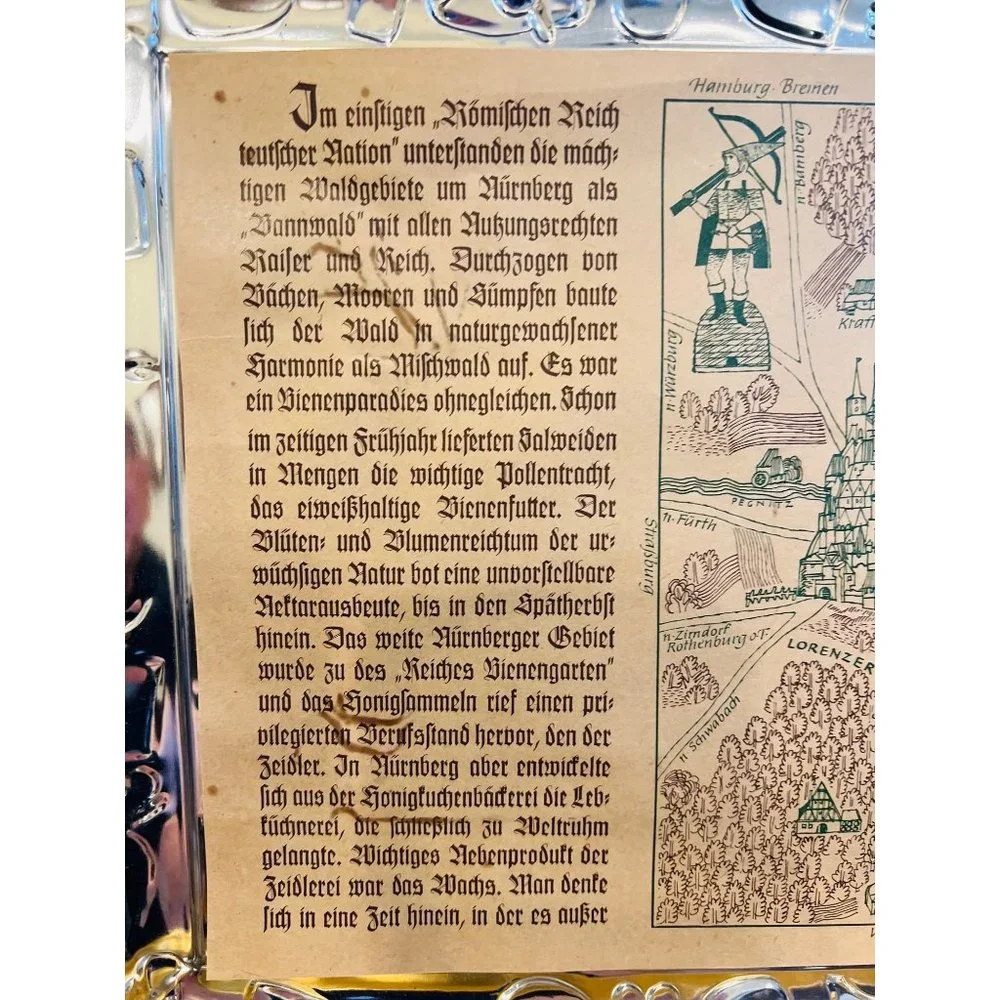 Im einstigen „Römischen Reich
teutscher Nation“ unterstanden die mäch-
tigen Waldgebiete um Nürnberg als
„Bannwald“ mit allen Nutzungsrechten
Kaiser und Reich. Durchzogen von
Bächen, Mooren und Sümpfen baute
sich der Wald in naturgewachsener
Harmonie als Mischwald auf. Es war
ein Bienenparadies ohnegleichen. Schon
im zeitigen Frühjahr lieferten Salweiden
in Mengen die wichtige Pollentracht,
das eiweißhaltige Bienenfutter. Der
Blüten- und Blumenreichtum der ur-
wüchsigen Natur bot eine unvorstellbare
Nektarausbeute, bis in den Spätherbst
hinein. Das weite Nürnberger Gebiet
wurde zu des „Reiches Bienengarten“
und das Honigsammeln rief einen pri-
vilegierten Berufsstand hervor, den der
Zeidler. In Nürnberg aber entwickelte
sich aus der Honigkuchenbäckerei die Leb-
küchnerei, die schließlich zu Weltruhm
gelangte. Wichtiges Nebenprodukt der
Zeidlerei war das Wachs. Man denke
sich in eine Zeit hinein, in der es außer
Hamburg - Bremen
n. Bamberg
Kraft
n. Würzburg
PEGNITZ
n. Fürth
Straßburg
n. Zirndorf
Rothenburg o.T.
LORENZER
n. Schwabach